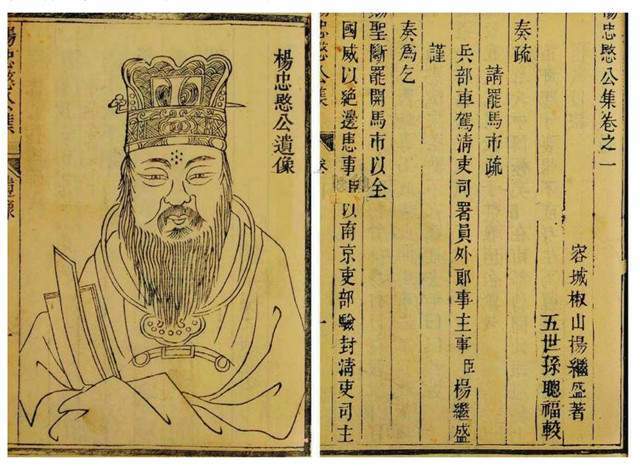 楊忠愍公遺像
楊忠愍公集
遺像
楊忠愍公集卷之一
容城椒山楊繼盛著
五世孫聰福較
奏疏
請罷馬市疏
兵部車駕清吏司署員外郎事主事臣楊繼盛
謹
奏爲乞
賜聖斷罷開馬市以全
國威以絕邊患事臣以南京吏部驗封清吏司主